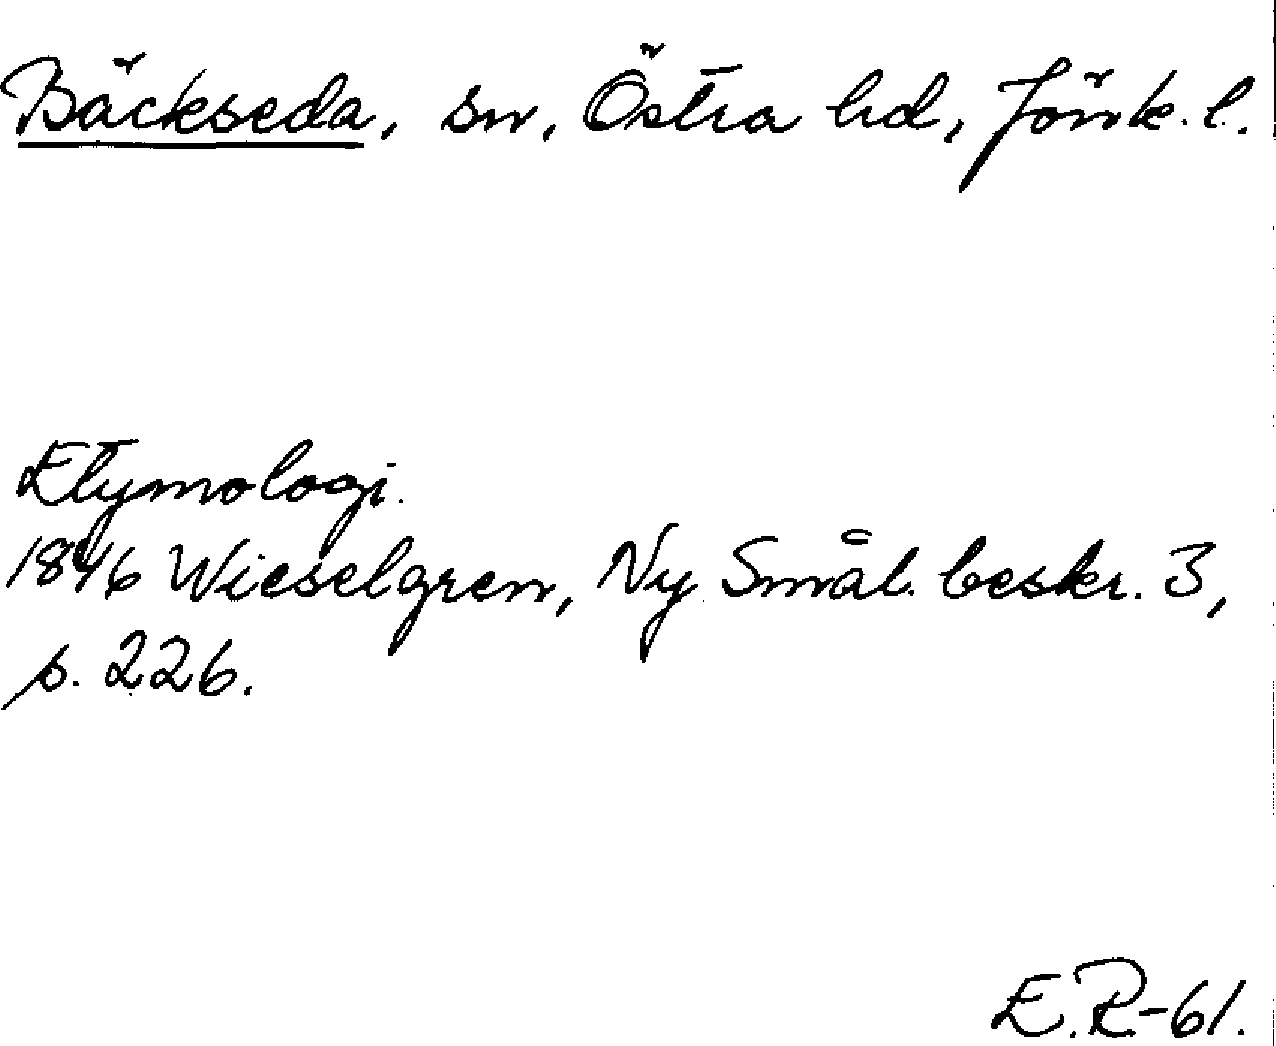 Bäckseda, sn, Östra hd, Jönk. l.
Etymologi.
1846 Wieselgren, Ny Smål. beskr. 3,
s. 226.
E.R-61.